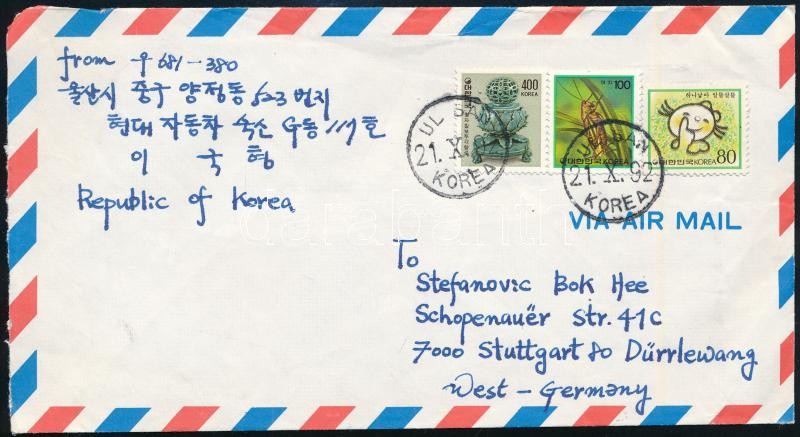 from 우 681-380
울산시 중구 양정동 523번지
현대 자동차 숙산 G동 119호
이 국형
Republic of Korea
400
KOREA
대한민국
여치 100
대한민국 KOREA
하나낳아 알뜰살뜰
대한민국 KOREA 80
UL SAN
21. X.
KOREA
UL SAN
21. X. 92
KOREA
VIA AIR MAIL
To
Stefanovic Bok Hee
Schopenauër Str. 41c
7000 Stuttgart 80 Dürrlewang
West-Germany